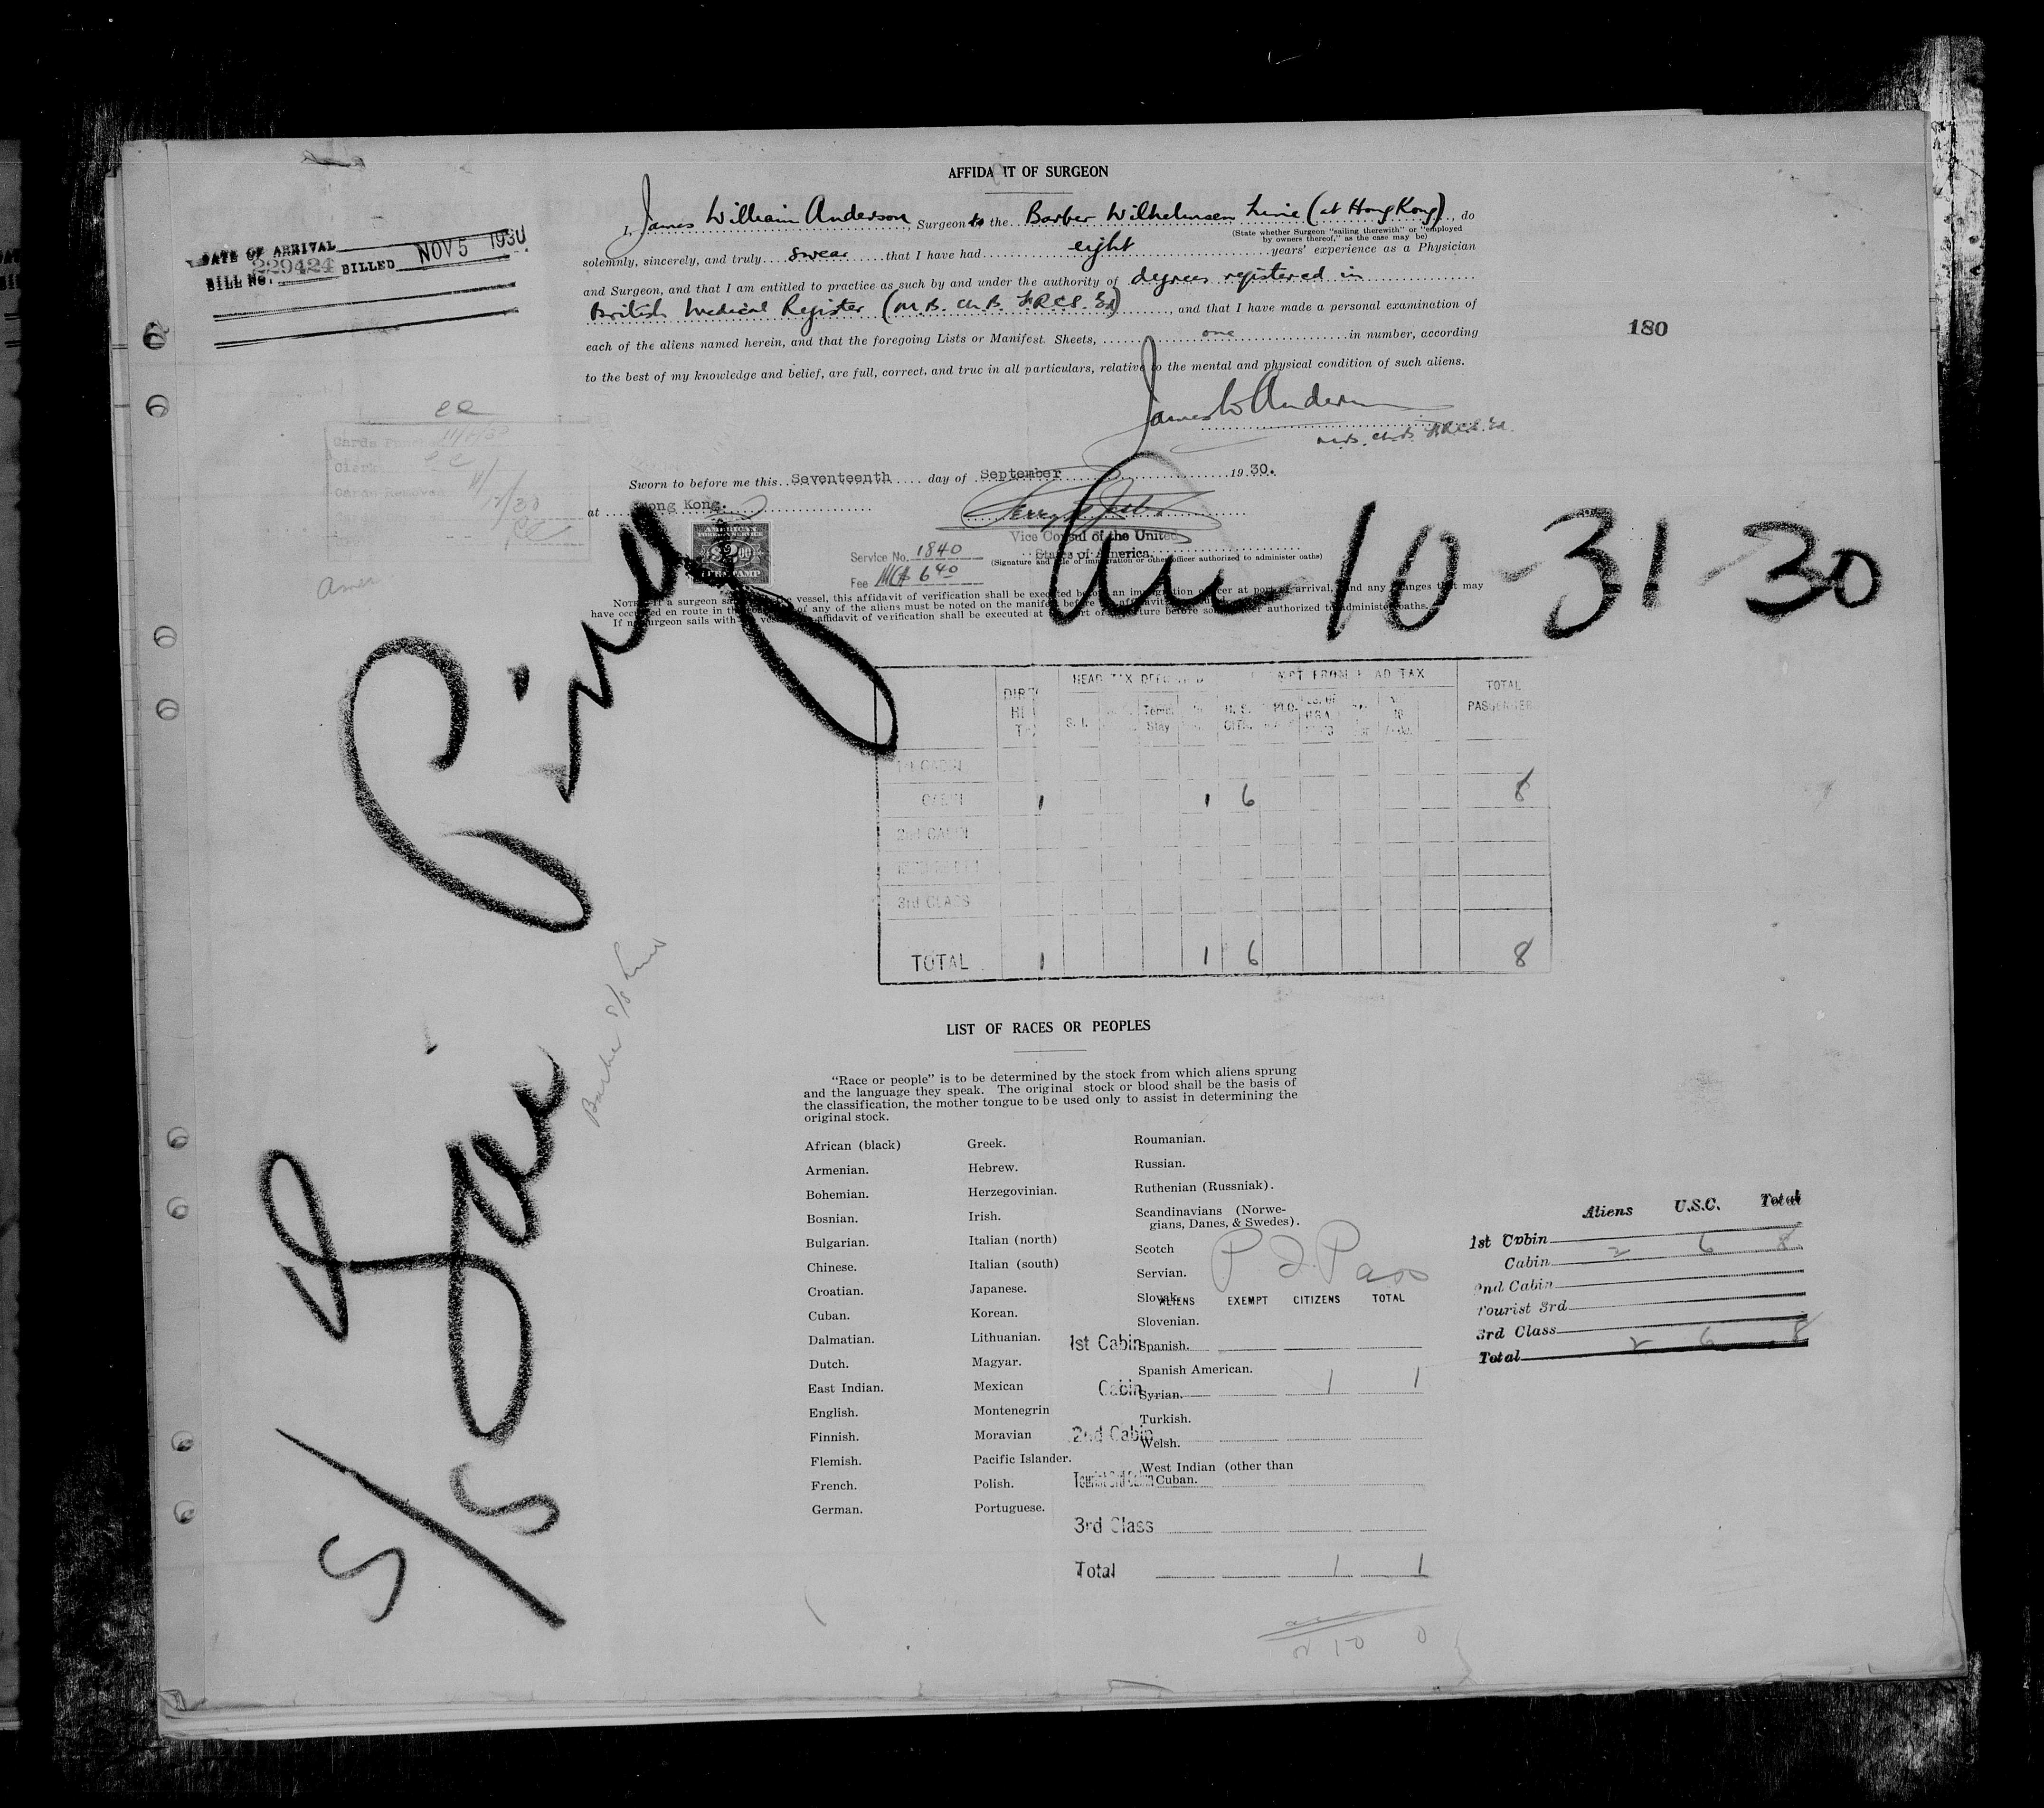 AFFIDAVIT OF SURGEON
I, James William Anderson, Surgeon to the Barber Wilhelmsen Line (at Hong Kong), do
(State whether Surgeon "sailing therewith" or "employed
by owners thereof," as the case may be)
solemnly, sincerely, and truly swear that I have had eight years' experience as a Physician
and Surgeon, and that I am entitled to practice as such by and under the authority of degrees registered in
British Medical Register (M.B. Ch.B. F.R.C.S. Ed), and that I have made a personal examination of
each of the aliens named herein, and that the foregoing Lists or Manifest Sheets, one in number, according
to the best of my knowledge and belief, are full, correct, and true in all particulars, relative to the mental and physical condition of such aliens.
James W Anderson
M.B. Ch.B. F.R.C.S. Ed.
DATE OF ARRIVAL
BILL No. 229424 BILLED NOV 5 1930
180
Cards Punched
Clerk
Cards Removed
Sworn to before me this Seventeenth day of September 1930.
at Hong Kong.
Vice Consul of the United
States of America.
(Signature and title of immigration or other officer authorized to administer oaths)
AMERICAN
FOREIGN SERVICE
$2.00
FEE STAMP
Service No. 1840
Fee 640
NOTE.—If a surgeon sails with the vessel, this affidavit of verification shall be executed before an immigration officer at port of arrival, and any changes that may
have occurred en route in the condition of any of the aliens must be noted on the manifest before the affidavit authorized to administer oaths.
If no surgeon sails with the vessel, the affidavit of verification shall be executed at the port of departure before some officer
Arr 10-31-30
S/S Tai Ping
Barber S/S Line
HEAD TAX DEFERRED EXEMPT FROM HEAD TAX TOTAL PASSENGERS
S. I. Temp. Stay U. S. CITZ.
1st CABIN
CABIN 1 1 6 8
2nd CABIN
3rd CLASS
TOTAL 1 1 6 8
LIST OF RACES OR PEOPLES
"Race or people" is to be determined by the stock from which aliens sprung
and the language they speak. The original stock or blood shall be the basis of
the classification, the mother tongue to be used only to assist in determining the
original stock.
African (black)
Armenian.
Bohemian.
Bosnian.
Bulgarian.
Chinese.
Croatian.
Cuban.
Dalmatian.
Dutch.
East Indian.
English.
Finnish.
Flemish.
French.
German.
Greek.
Hebrew.
Herzegovinian.
Irish.
Italian (north)
Italian (south)
Japanese.
Korean.
Lithuanian.
Magyar.
Mexican
Montenegrin
Moravian
Pacific Islander.
Polish.
Portuguese.
Roumanian.
Russian.
Ruthenian (Russniak).
Scandinavians (Norwe-
gians, Danes, & Swedes).
Scotch
Servian.
Slovak.
Slovenian.
Spanish.
Spanish American.
Syrian.
Turkish.
Welsh.
West Indian (other than
Cuban.
P I Pass
ALIENS EXEMPT CITIZENS TOTAL
1st Cabin
Cabin 1 1
2nd Cabin
Tourist 3rd Cabin
3rd Class
Total 1 1
Aliens U.S.C. Total
1st Cabin
Cabin 2 6 8
2nd Cabin
Tourist 3rd
3rd Class
Total 2 6 8